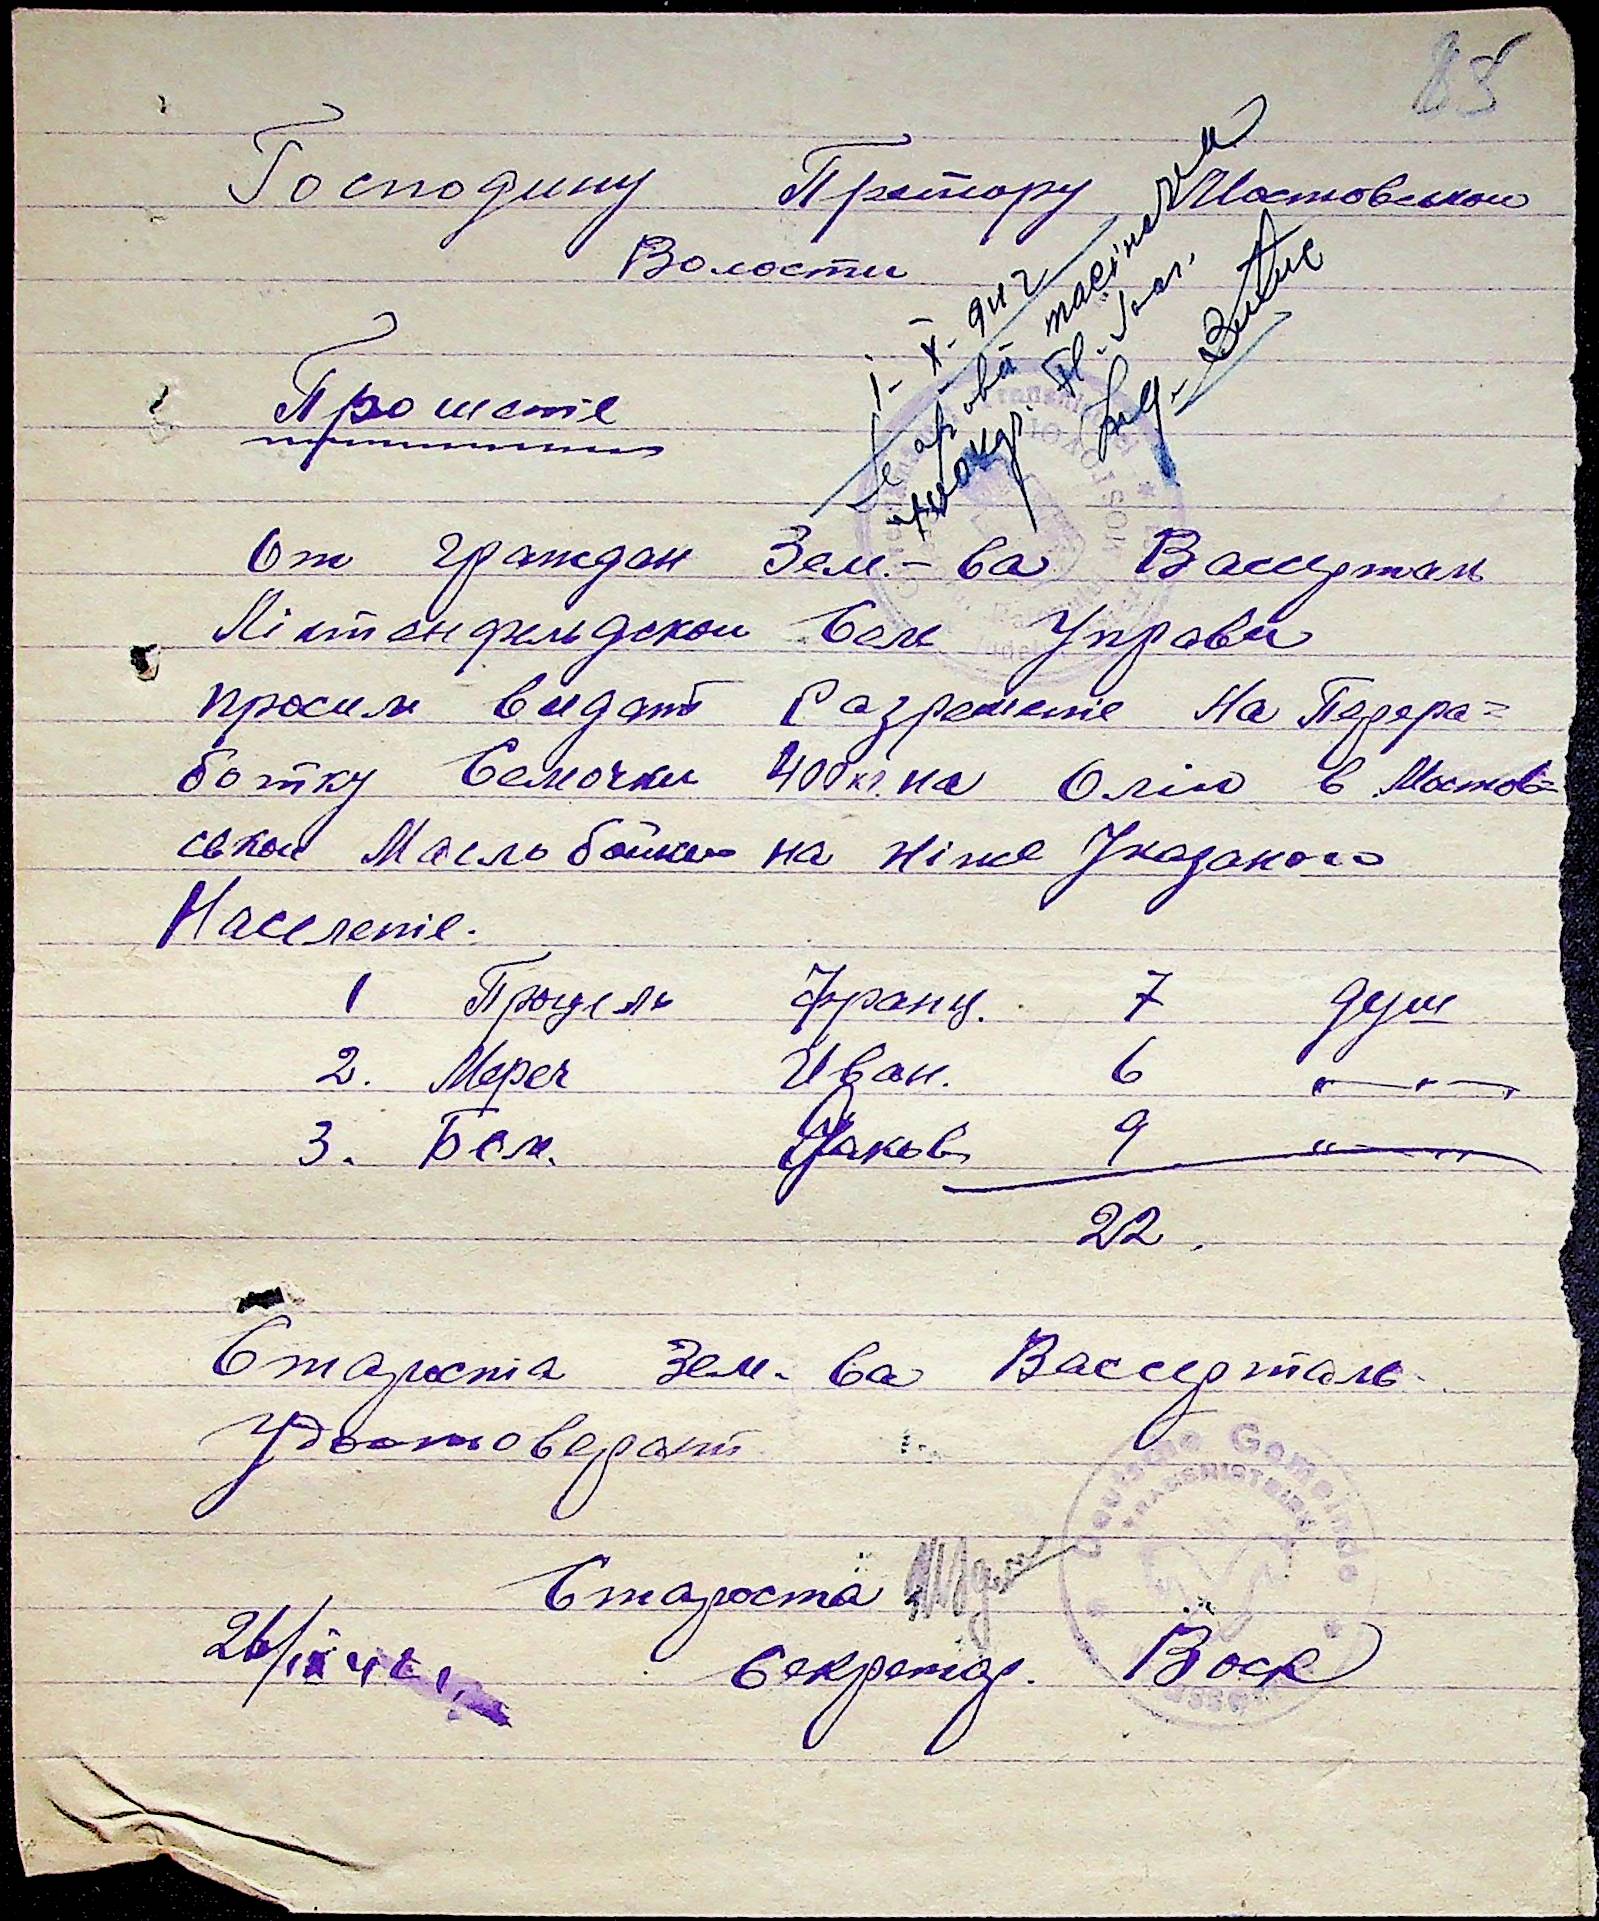 88
Господину Претору Мостовськои
Волости
1-X-942
Se aprobă măcinarea
Прошеніе
От граждан Зем.-ва Вассерталь
Ліхтенфельдскои Сель Управи
просим видать Разрешеніе На Перера=
ботку Семочки 400 кг. на Олію в Мостов=
ськои Маслобойки на ніже Указаного
Населеніе.
1 Франц. 7 душ
2. Мереч Иван. 6 —"—
3. Бел. Яков 9 —"—
22.
Староста Зем.-ва Вассерталь
Удостоверяют
Староста
26/IX 42
Секретар. Воск
Deutsche Gemeinde
TRANSNISTRIEN